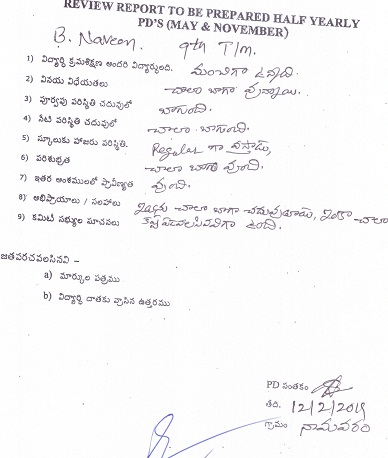 REVIEW REPORT TO BE PREPARED HALF YEARLY
PD'S (MAY & NOVEMBER)
B. Naveen. 9th T/m.
1) విద్యార్థి క్రమశిక్షణ అందరి విద్యార్థులది. మంచిగా ఉన్నది.
2) వినయ విధేయతలు చాలా బాగా వున్నాయి.
3) పూర్వపు పరిస్థితి చదువులో బాగుంది.
4) నేటి పరిస్థితి చదువులో చాలా బాగుంది.
5) స్కూలుకు హాజరు పరిస్థితి. Regular గా వస్తాడు,
6) పరిశుభ్రత చాలా బాగా వుంది.
7) ఇతర అంశములలో ప్రావీణ్యత వుంది.
8) అభిప్రాయాలు / సలహాలు చాలా బాగా చదువుతాడు, ఇంకా చాలా
9) కమిటి సభ్యుల సూచనలు కష్టపడవలసినదిగా ఉంది.
జతపరచవలసినవి –
a) మార్కుల పత్రము
b) విద్యార్థి దాతకు వ్రాసిన ఉత్తరము
PD సంతకం
తేది. 12/2/2019
గ్రామం నామవరం